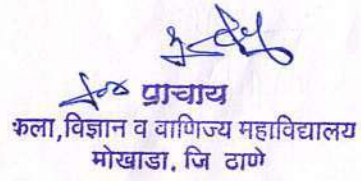 for प्राचार्य
कला,विज्ञान व वाणिज्य महाविद्यालय
मोखाडा. जि ठाणे